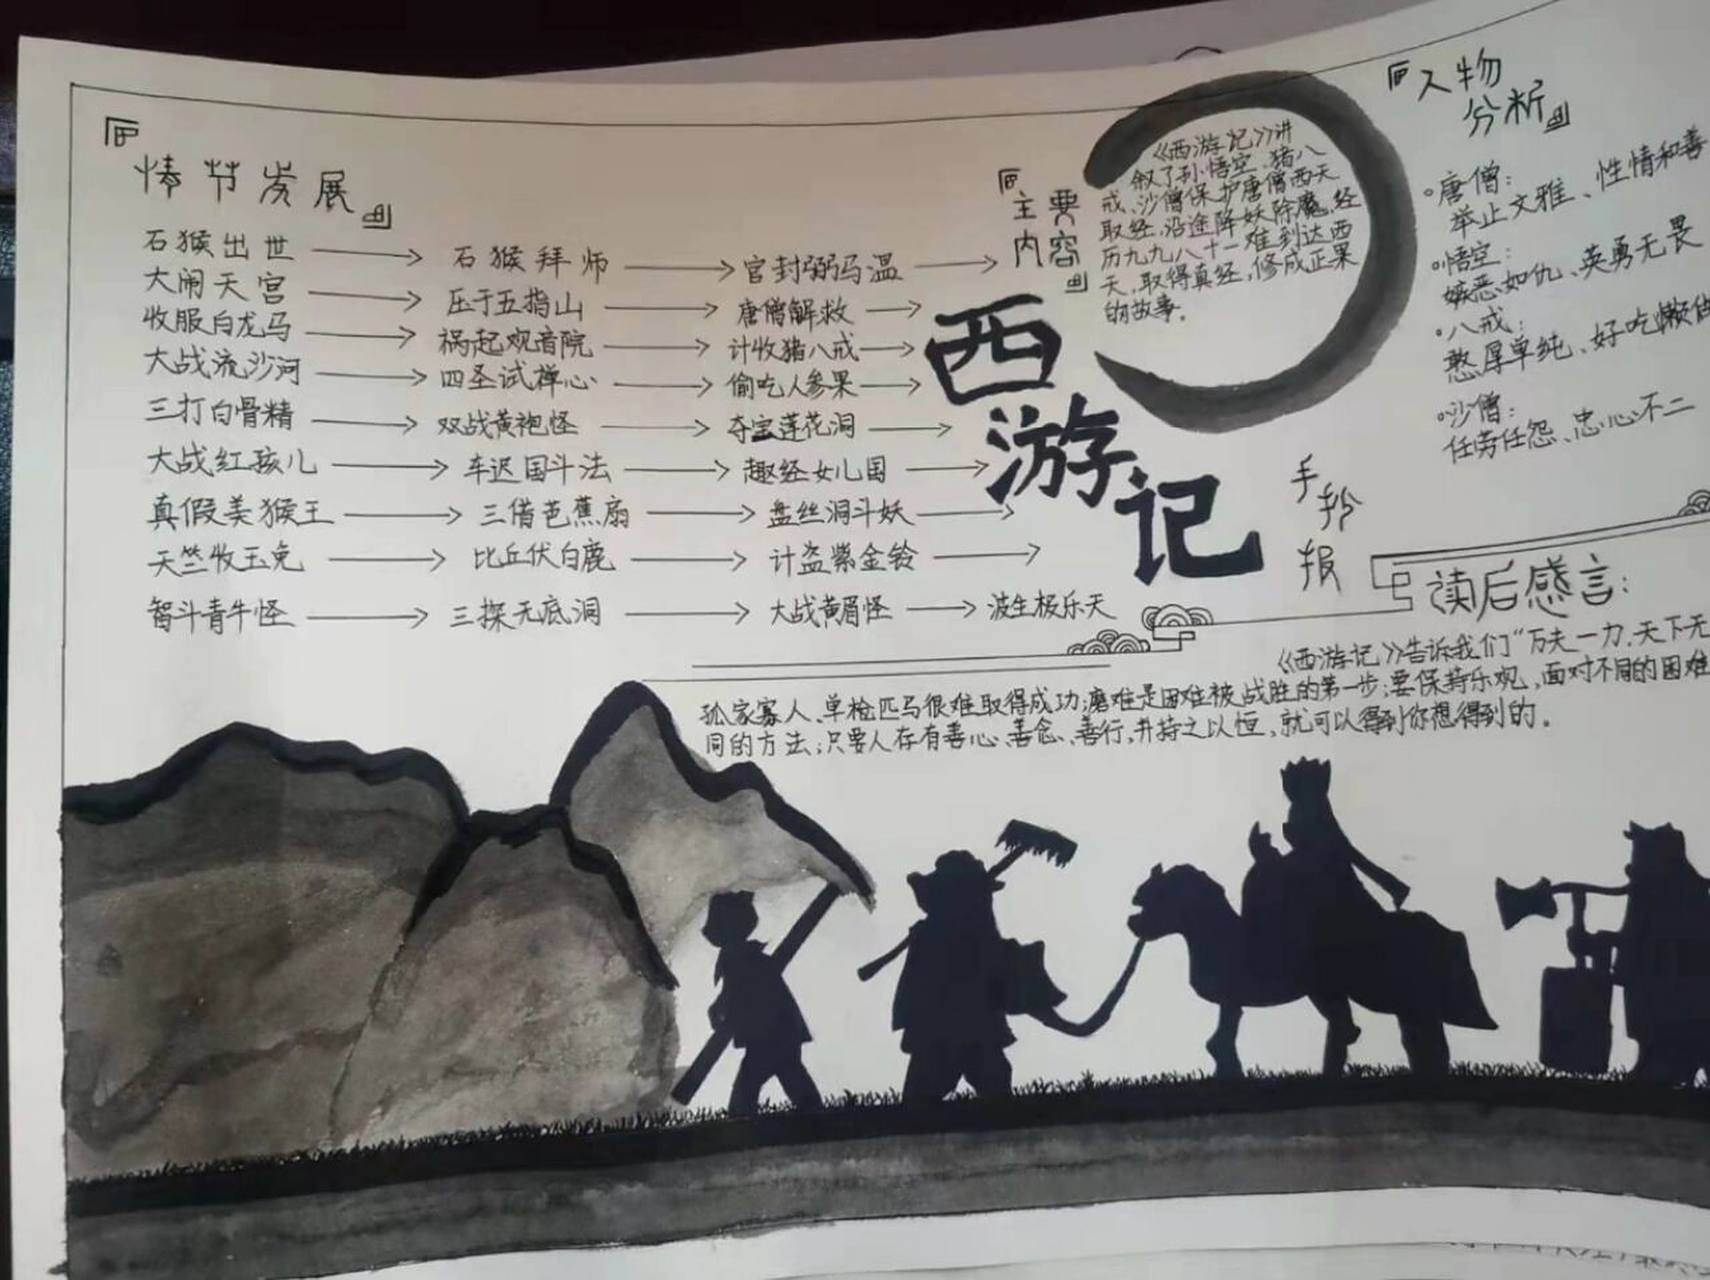 情节发展
石猴出世 → 石猴拜师 → 官封弼马温 →
大闹天宫 → 压于五指山 → 唐僧解救 →
收服白龙马 → 祸起观音院 → 计收猪八戒 →
大战流沙河 → 四圣试禅心 → 偷吃人参果 →
三打白骨精 → 双战黄袍怪 → 夺宝莲花洞 →
大战红孩儿 → 车迟国斗法 → 趣经女儿国 →
真假美猴王 → 三借芭蕉扇 → 盘丝洞斗妖 →
天竺收玉兔 → 比丘伏白鹿 → 计盗紫金铃 →
智斗青牛怪 → 三探无底洞 → 大战黄眉怪 → 波生极乐天
主要
内容
《西游记》讲
叙了孙悟空、猪八
戒、沙僧保护唐僧西天
取经、沿途降妖除魔、经
历九九八十一难到达西
天,取得真经,修成正果
的故事。
西游记
手抄报
人物
分析
唐僧:
举止文雅、性情和善
悟空:
嫉恶如仇、英勇无畏
八戒:
憨厚单纯、好吃懒做
沙僧:
任劳任怨、忠心不二
读后感言:
《西游记》告诉我们“万夫一力,天下无
孤家寡人、单枪匹马很难取得成功;磨难是困难被战胜的第一步;要保持乐观,面对不同的困难
同的方法;只要人存有善心、善念、善行,并持之以恒,就可以得到你想得到的。